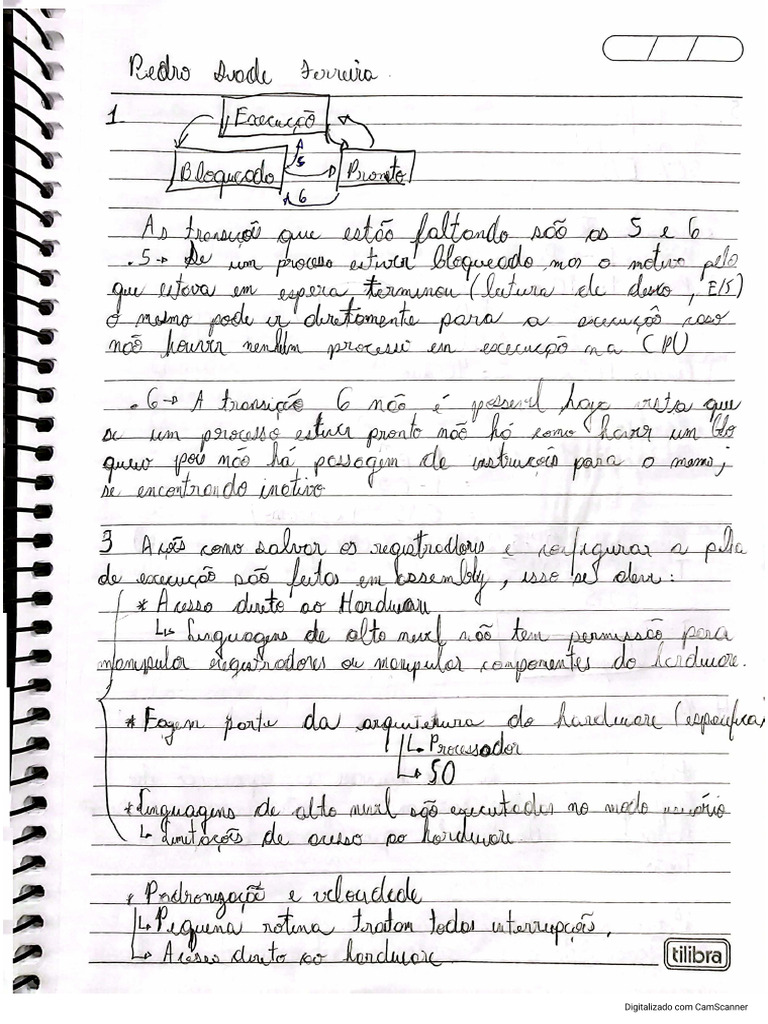 Pedro Ferreira.
1
Execução
Bloqueado 5 Pronto
6
As transições que estão faltando são as 5 e 6
.5→ Se um processo estiver bloqueado, mas o motivo pelo
que estava em espera terminou (leitura de disco, E/S)
o mesmo pode ir diretamente para a execução caso
não houver nenhum processo em execução na CPU
.6→ A transição 6 não é possível, haja vista que
se um processo estiver pronto não há como haver um blo
queio pois não há passagem de instruções para o mesmo;
se encontrando inativo
3 Ações como salvar os registradores e configurar a pilha
de execução são feitas em assembly, isso se deve:
* Acesso direto ao Hardware
↳ Linguagens de alto nível não tem permissão para
manipular registradores ou manipular componentes do hardware.
* Fazem parte da arquitetura do hardware (específica)
↳ Processador
↳ SO
* Linguagens de alto nível são executadas no modo usuário
↳ Limitações de acesso ao hardware.
* Padronização e velocidade
↳ Pequena rotina tratam todas interrupções.
↳ Acesso direto ao hardware.
tilibra
Digitalizado com CamScanner